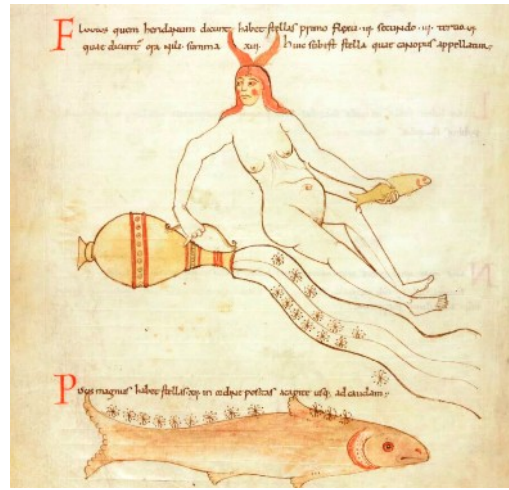 Fluvius quem heridanum dicunt habet stellas primo flexu ·iii· secundo ·iii· tertio ·vi·
quae dicunt ora nili· summa xiii· huic subest stella quae canopus appellatur;
Piscis magnus habet stellas xii in ordine positas a capite usq; ad caudam;